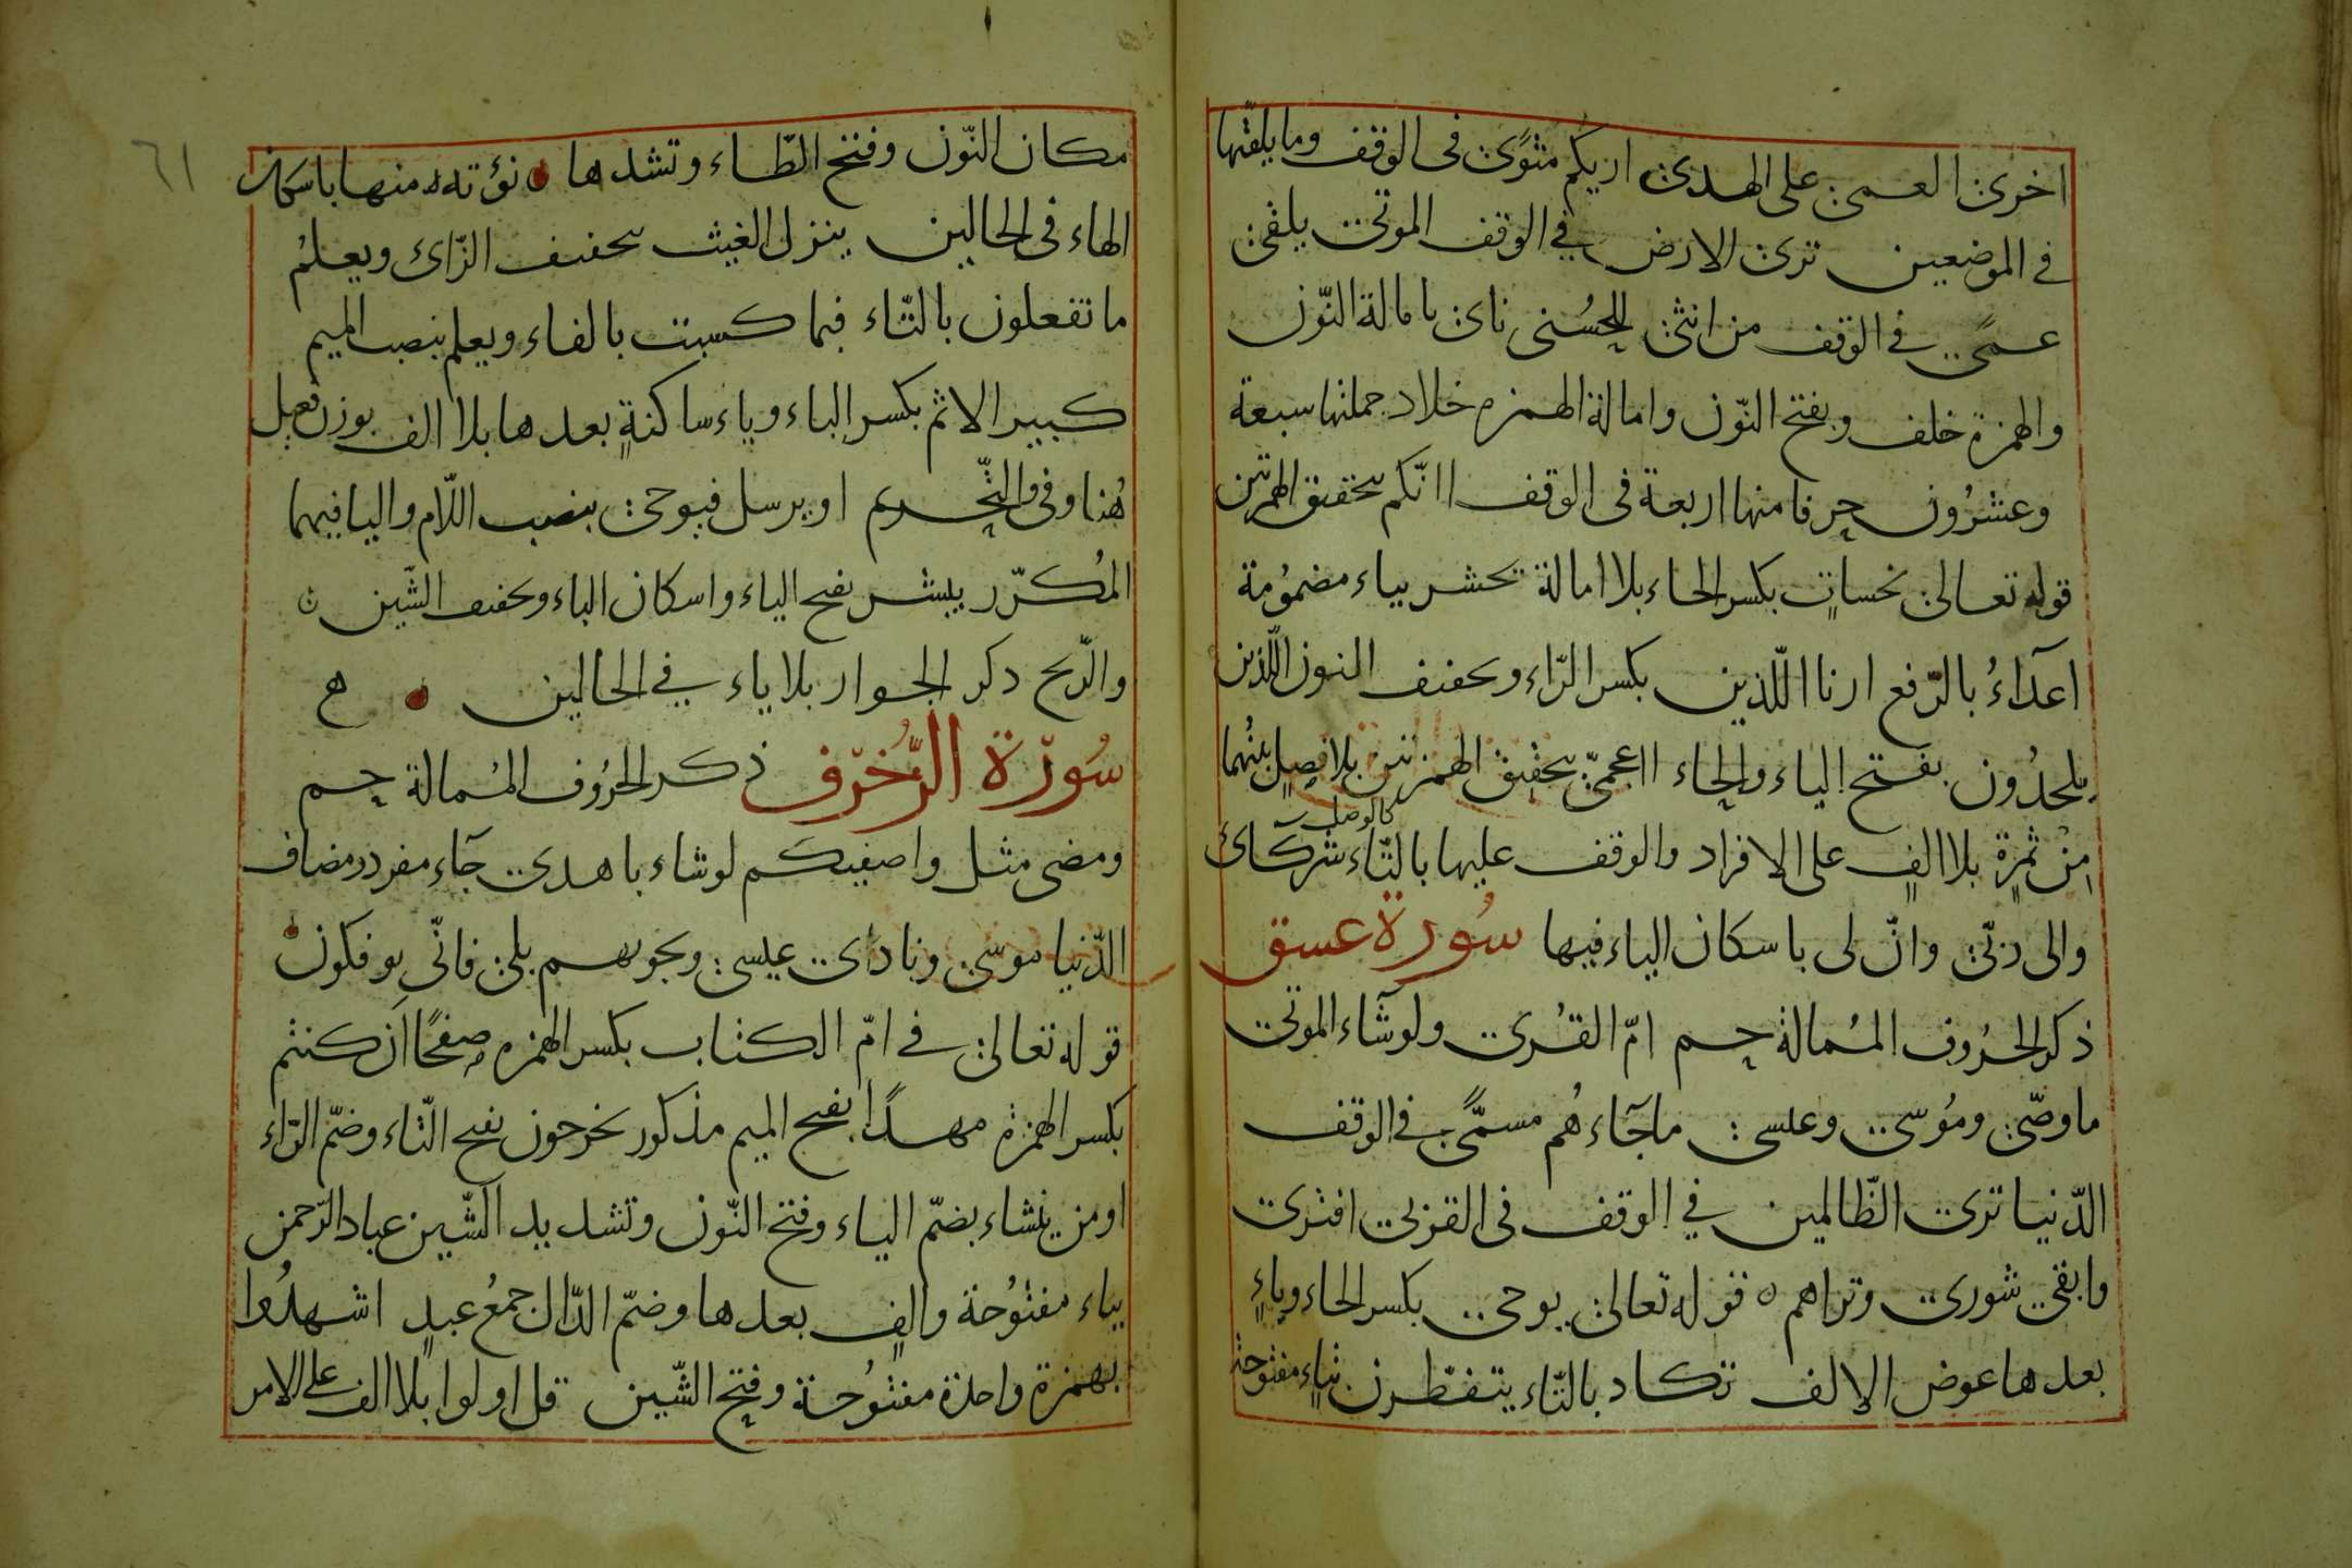 اخرى العمى على الهدى اريكم مثوًى فى الوقف وما يلقّيها
فى الموضعين ترى الارض فى الوقف الموتى يلقى
عمًى فى الوقف من انثى للحُسنى ناى بامالة النّون
والهمزة خلف وبفتح النّون وامالة الهمزه خلاد جملتها سبعة
وعشرُون حرفا منها اربعة فى الوقف اانّكم بتحقيق الهمزتين
قوله تعالى نحساتٍ بكسر الحاء بلا امالة يحشر بياء مضمُومة
اعدآءُ بالرّفع ارنا اللّذين بكسر الرّاء وتحفيف النون اللّذين
يلحدُون بفتح الياء والحاء ااعجمىّ بتحقيق الهمزتين بلا فصلٍ بينُهما
كالوصل
مِنْ ثمرةٍ بلا الفٍ على الافراد والوقف عليها بالتّاء شركآئ
والى ربّى وانّ لى باسكان الياء فيها سُورة عسق
ذكر الحرُوف المُمالة حم امّ القُرى ولوشآء الموتى
ما وصّى ومُوسى وعيسى ماجآءهُم مسمًّى فى الوقف
الدّنيا ترى الظّالمين فى الوقف فى القربى افترى
وابقى شورى وتراهم ه قوله تعالى يوحى بكسر الحاء وياءٍ
بعدها عوض الالف تكاد بالتّاء يتفطّرن بتاءٍ مفتوحة
٦١
مكان النّون وفتح الطّاء وتشدها نؤته منها باسكان
الهاء فى الحالين ينزل الغيث بتحفيف الزّاى ويعلمُ
ما تفعلون بالتّاء فبما كسبت بالفاء ويعلم بنصب الميم
كبير الاثم بكسر الباء وياء ساكنةٍ بعدها بلا الف بوزن فعيل
هُنا وفى والنّجم او يرسل فيوحى بنصب اللّام واليا فيهما
المُكرّر يبشر بفتح الياء واسكان الباء وتحفيف الشّين ن
والرّيح ذكر الجوار بلا ياء فى الحالين ه
سُورة الزُّخرُف ذكر الحرُوف المُمالة حم
ومضى مثل واصفيكم لوشاء باهدى جآء مفرد مضاف
الدّنيا موسى ونادى عيسى ونجويهم بلى فانّى يوفكون
قوله تعالى فى امّ الكتاب بكسر الهمزه صفحًا ان كنتم
بكسر الهمزة مهدًا بفتح الميم مذكور تخرجون بفتح التّاء وضمّ الرّاء
اومن ينشاء بضمّ الياء وفتح النّون وتشديد الشّين عباد الرّحمن
بباء مفتُوحة والفٍ بعدها وضمّ الدّال جمعُ عبدٍ اشهدُوا
بهمزة واحدة مفتُوحة وفتح الشّين قل اولوا بلا الف على الامر